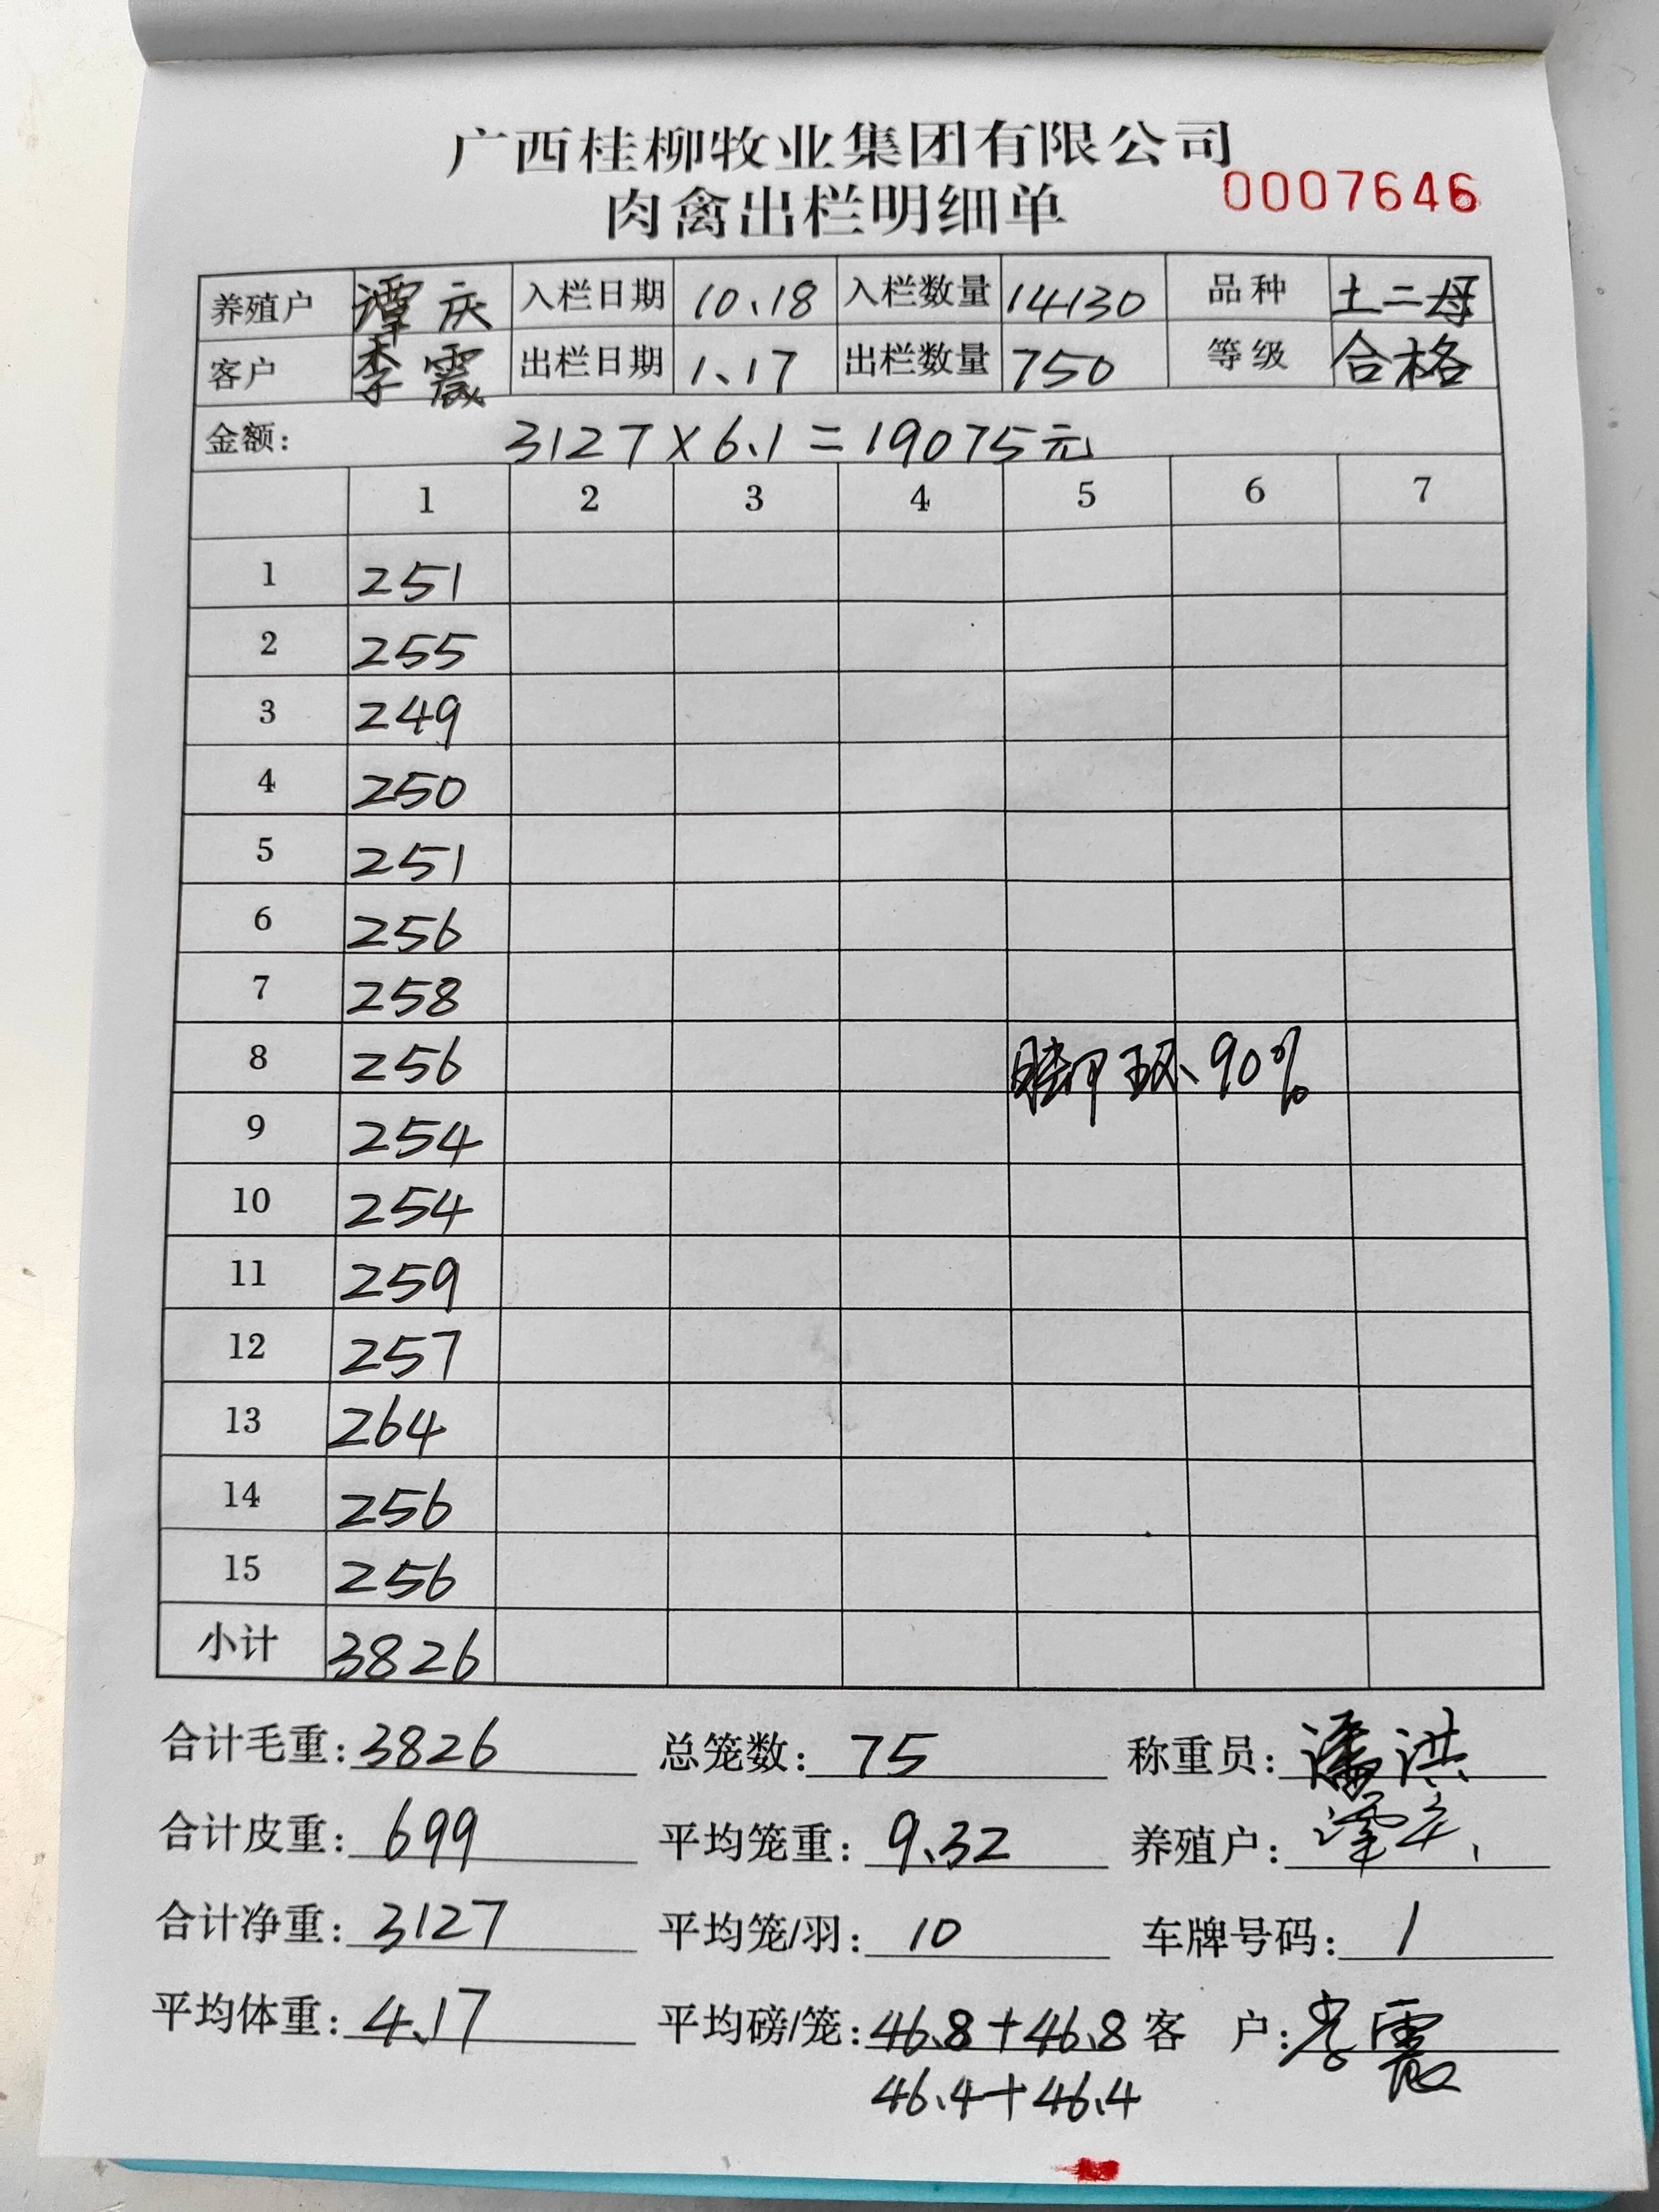 广西桂柳牧业集团有限公司
肉禽出栏明细单 0007646
养殖户 谭庆 入栏日期 10.18 入栏数量 14130 品种 土二母
客户 李震 出栏日期 1.17 出栏数量 750 等级 合格
金额: 3127×6.1=19075元
1 2 3 4 5 6 7
1 251
2 255
3 249
4 250
5 251
6 256
7 258
8 256 脚环90%
9 254
10 254
11 259
12 257
13 264
14 256
15 256
小计 3826
合计毛重: 3826 总笼数: 75 称重员: 潘洪
合计皮重: 699 平均笼重: 9.32 养殖户: 谭庆
合计净重: 3127 平均笼/羽: 10 车牌号码: 1
平均体重: 4.17 平均磅/笼: 46.8+46.8 客 户: 李震
46.4+46.4